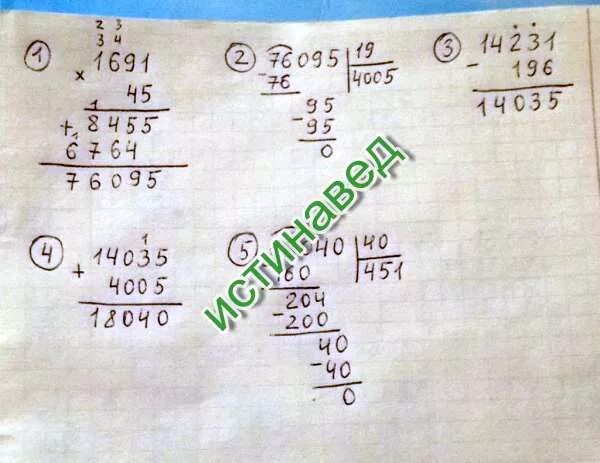 2 3
3 4
① 1691
× 45
1
+ 8455
1
6764
76095
② 76095 | 19
- 76 4005
95
- 95
0
③ 14231
- 196
14035
④ 1
14035
+ 4005
18040
⑤ 40 | 40
60 451
204
- 200
40
- 40
0
истинавед